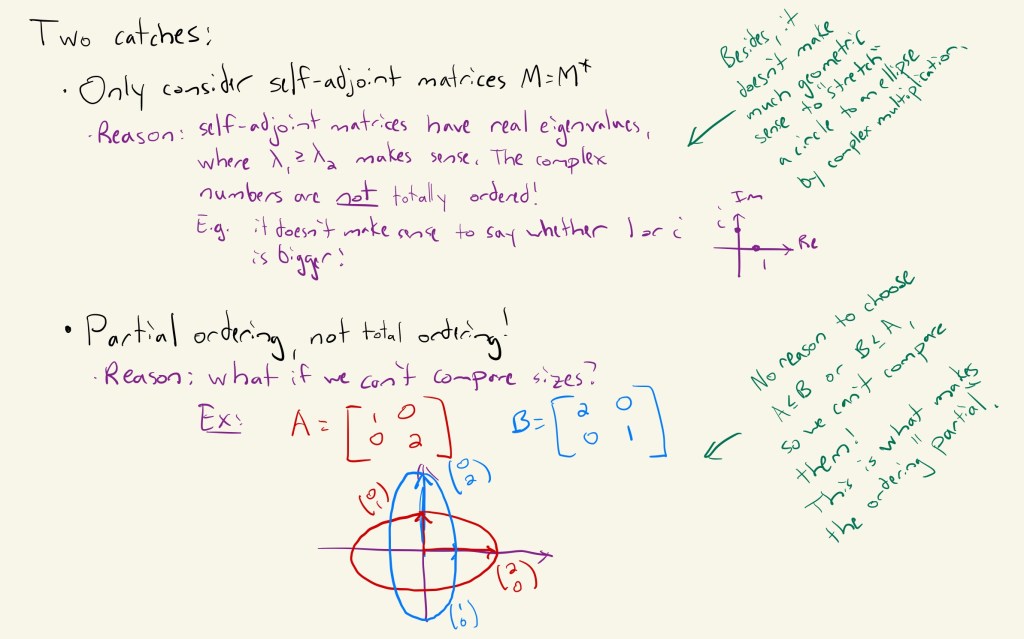 Two catches:
· Only consider self-adjoint matrices M=M*
· Reason: self-adjoint matrices have real eigenvalues,
where λ₁ ≥ λ₂ makes sense. The complex
numbers are not totally ordered!
E.g. it doesn't make sense to say whether 1 or i
is bigger!
Besides, it
doesn't make
much geometric
sense to "stretch"
a circle to an ellipse
by complex multiplication.
Im
i
Re
1
· Partial ordering, not total ordering!
· Reason: what if we can't compare sizes?
Ex: A = [1 0 B = [2 0
0 2] 0 1]
(0 2)
(0 1)
(2 0)
(1 0)
No reason to choose
A ≤ B or B ≤ A,
so we can't compare
them!
This is what makes
the ordering "partial".